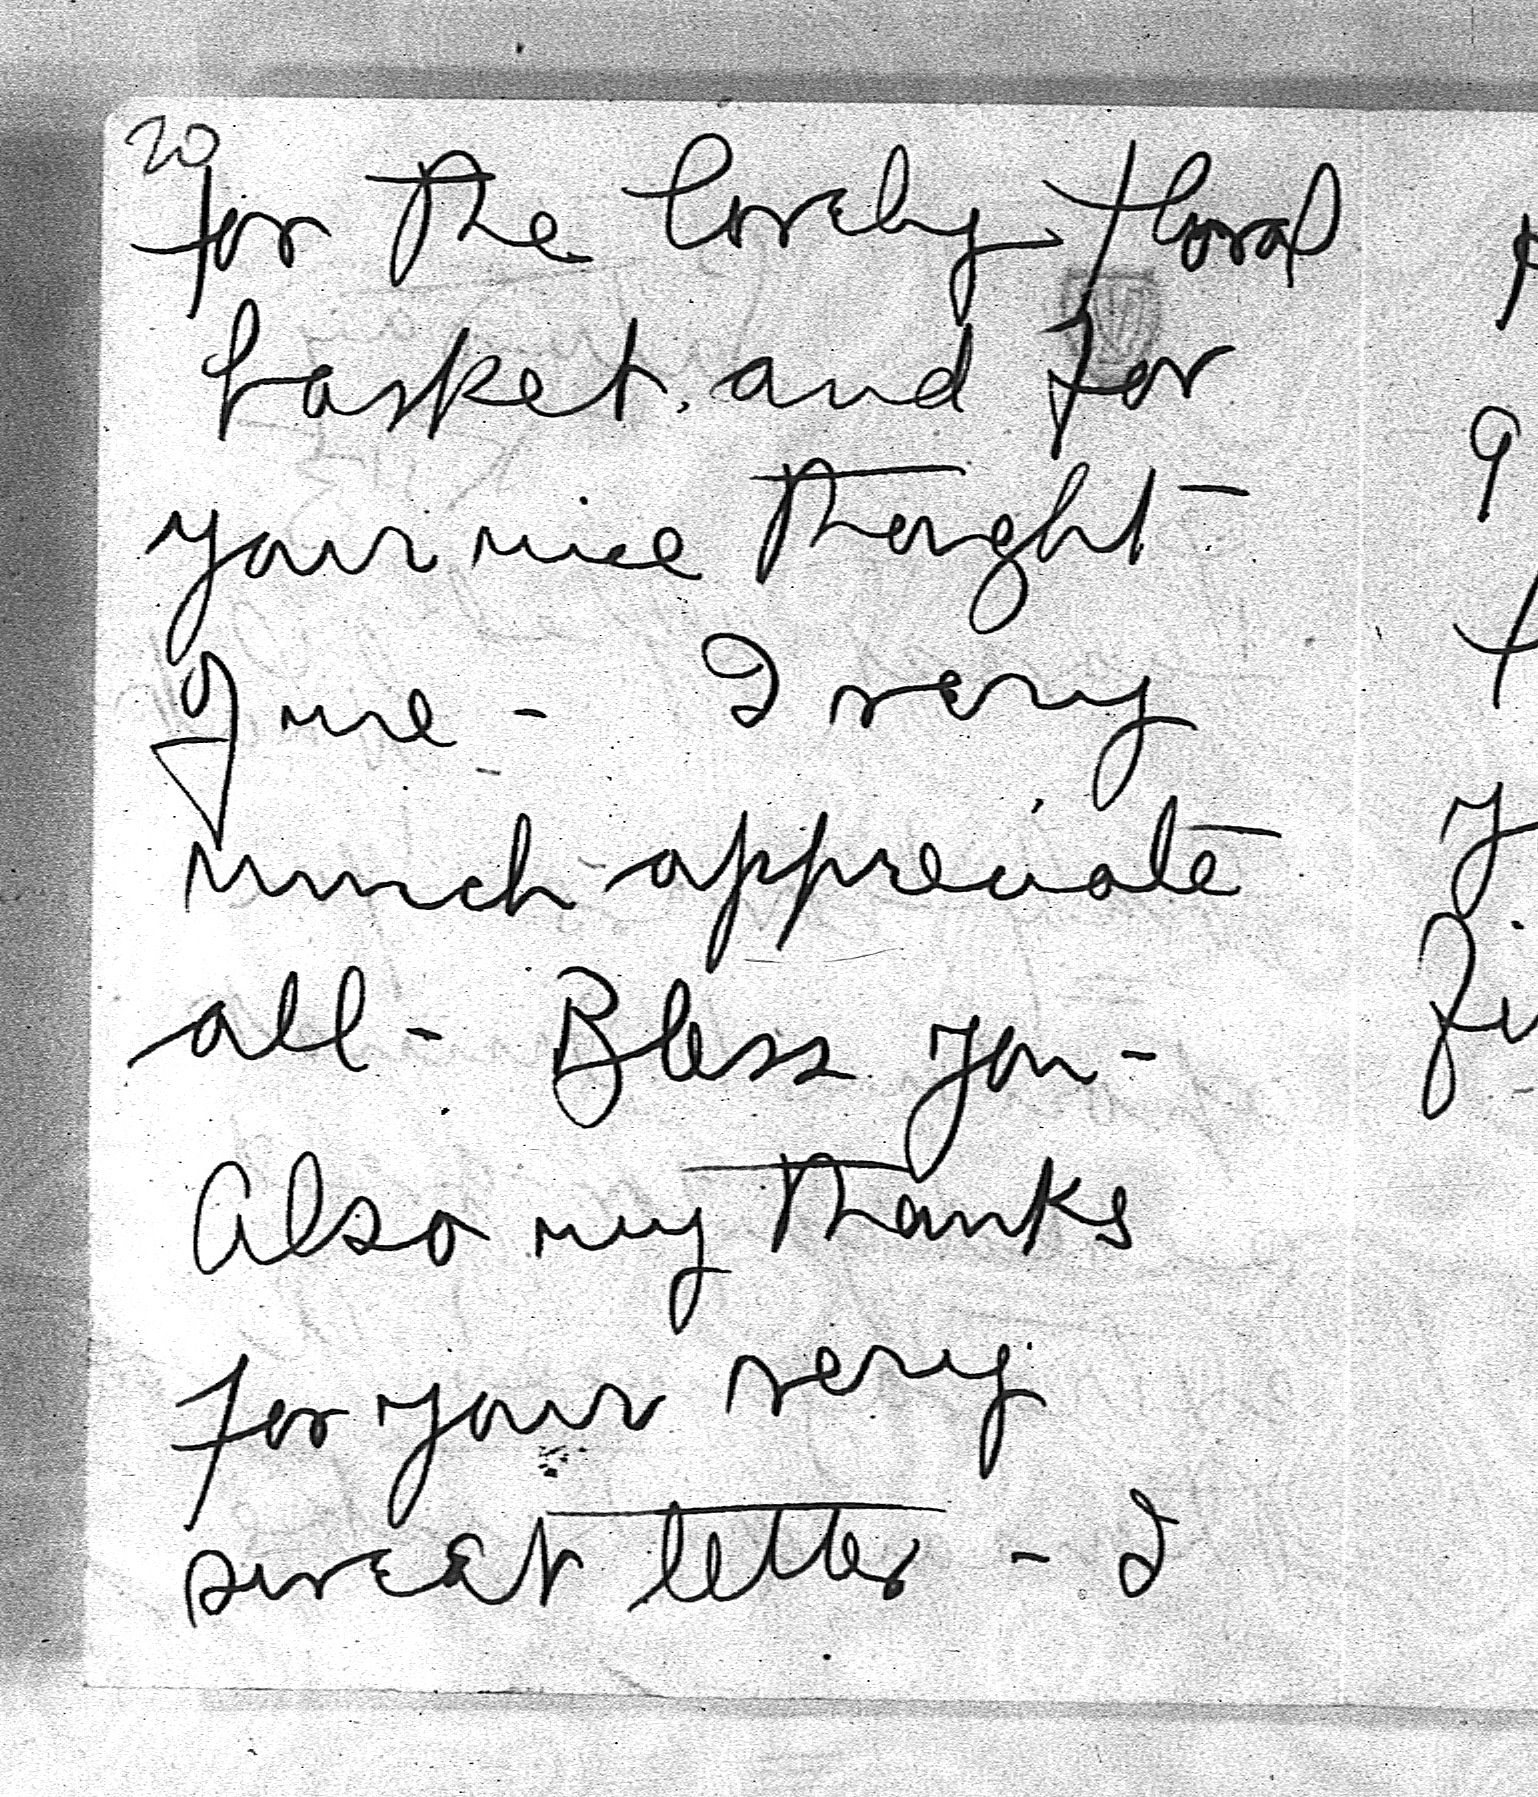 20
for the lovely floral
basket. and for
your nice thought
of me - I very
much appreciate
all - Bless you -
Also my thanks
for your very
sweet letter - I